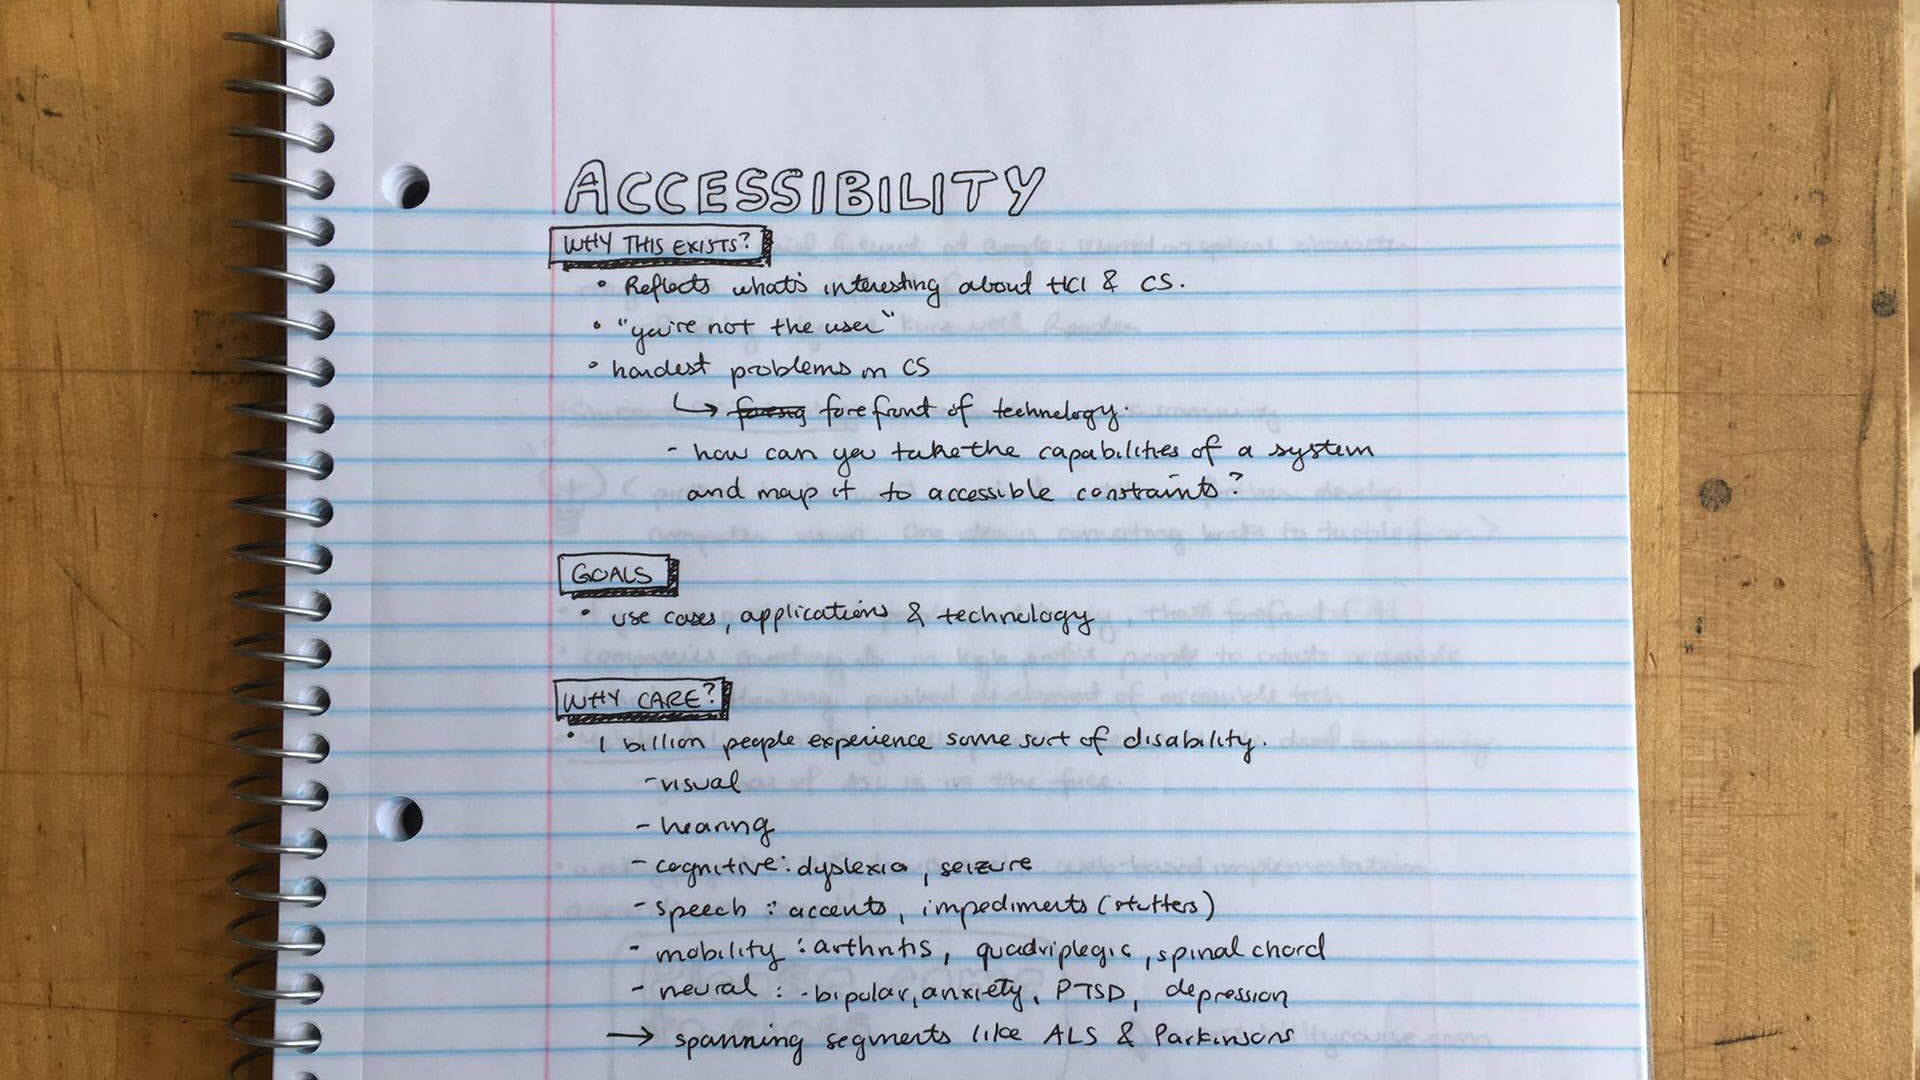 ACCESSIBILITY
WHY THIS EXISTS?
• Reflects what's interesting about HCI & CS.
• "you're not the user"
• hardest problems in CS
↳ foresig forefront of technology.
- how can you take the capabilities of a system
and map it to accessible constraints?
GOALS
• use cases, applications & technology
WHY CARE?
• 1 billion people experience some sort of disability.
- visual
- hearing
- cognitive: dyslexia, seizure
- speech: accents, impediments (stutters)
- mobility: arthritis, quadriplegic, spinal chord
- neural: - bipolar, anxiety, PTSD, depression
→ spanning segments like ALS & Parkinsons